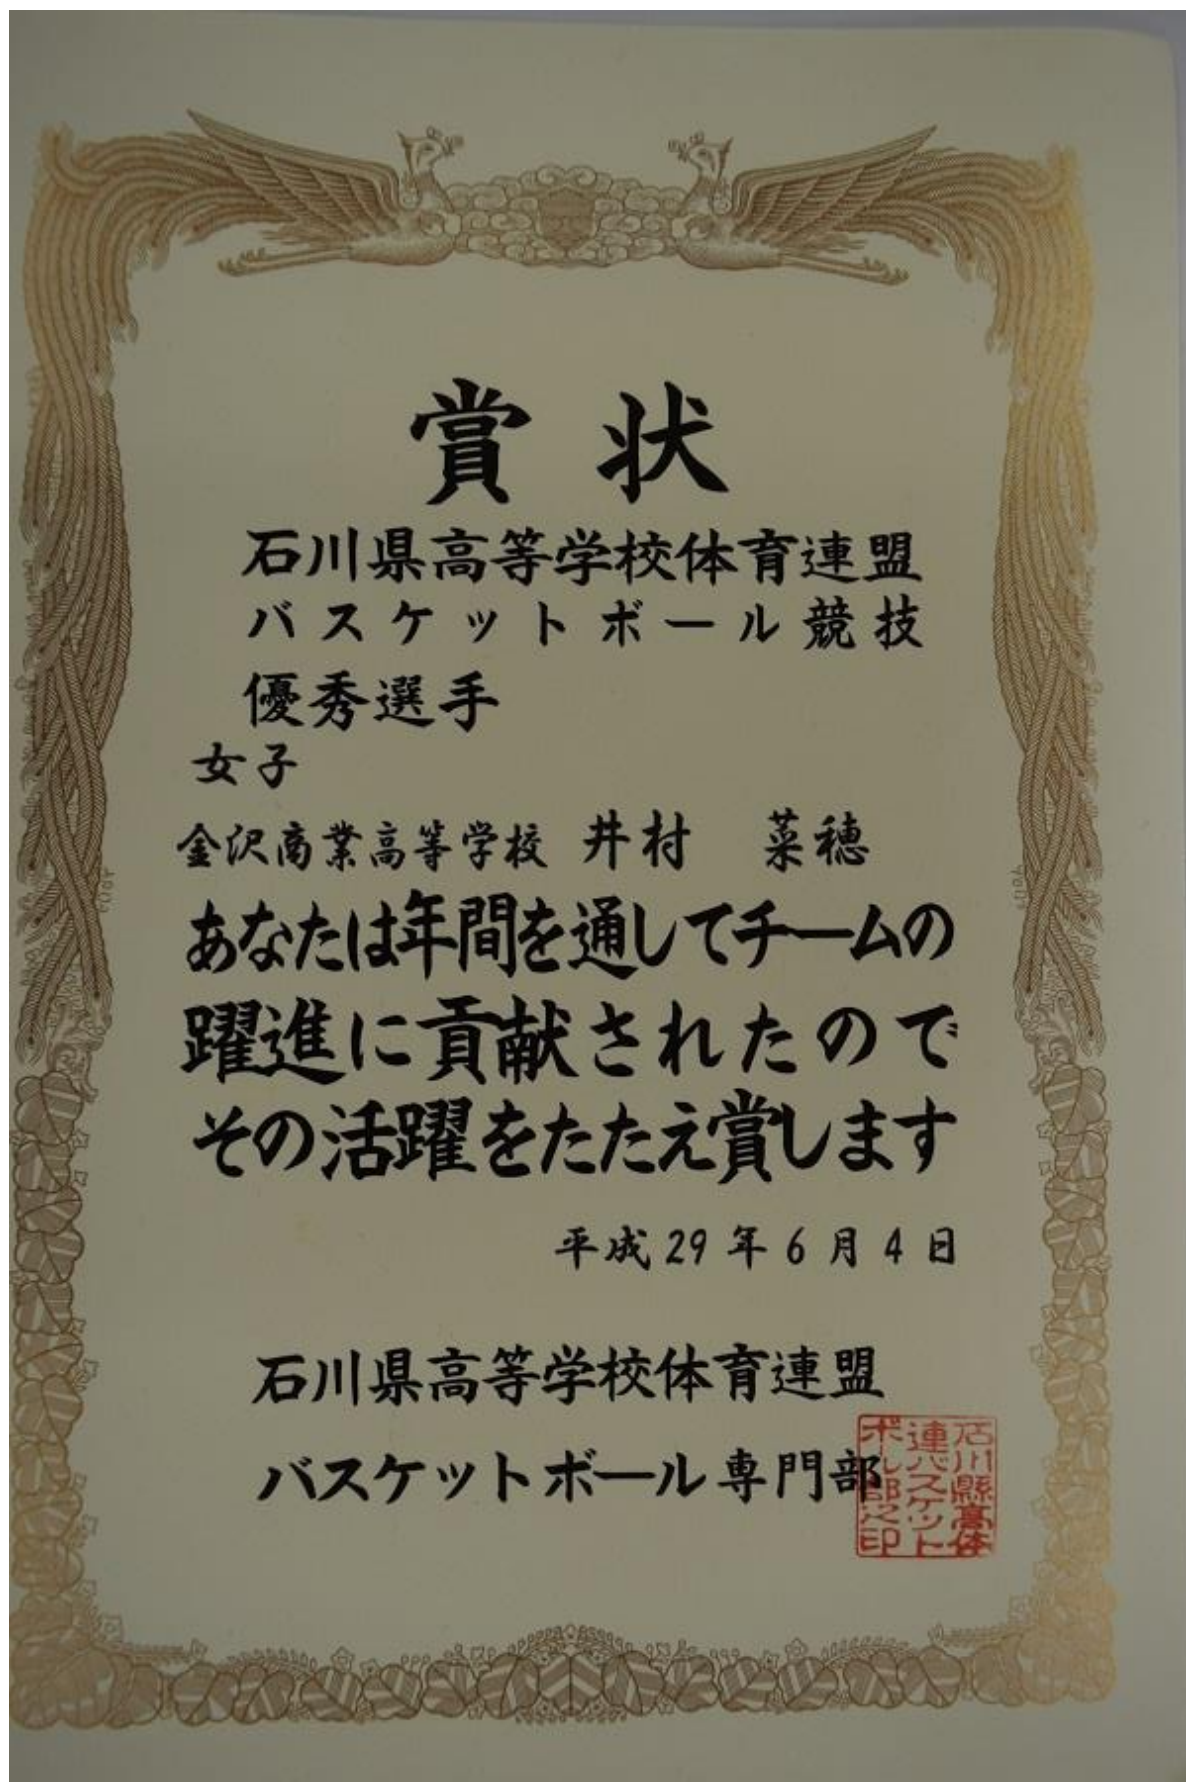 賞状
石川県高等学校体育連盟
バスケットボール競技
優秀選手
女子
金沢商業高等学校 井村 菜穂
あなたは年間を通してチームの
躍進に貢献されたので
その活躍をたたえ賞します
平成29年6月4日
石川県高等学校体育連盟
バスケットボール専門部
石川縣高体
連バスケット
ボール部之印